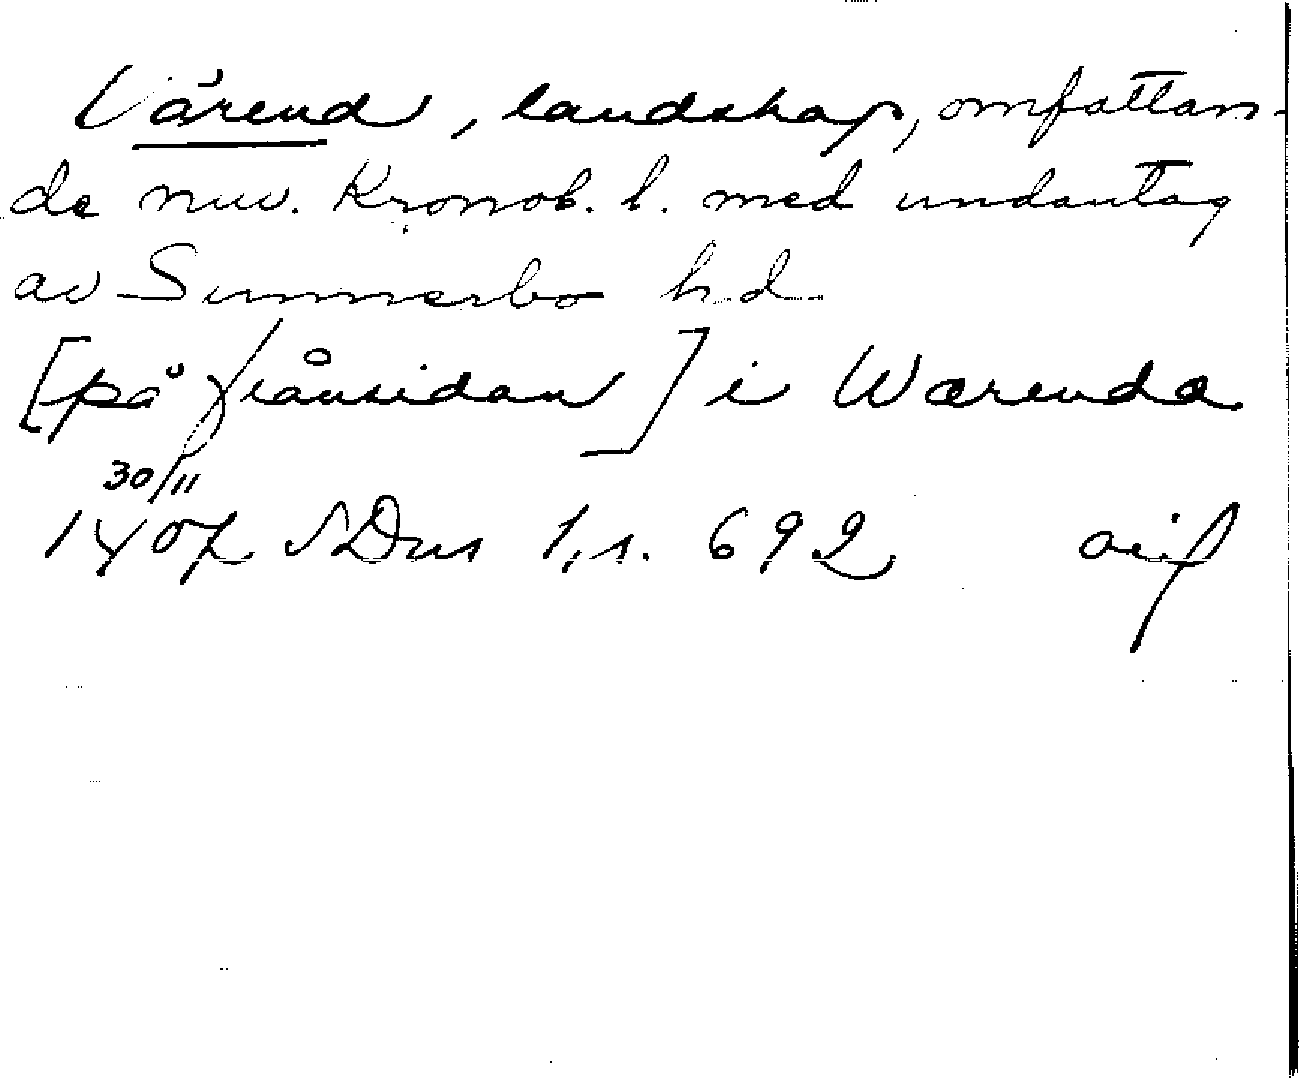 Värend, landskap, omfattan-
de nuv. Kronob. l. med undantag
av Sunnerbo hd
[på frånsidan] i Wærendæ
30/11
1407 SDns 1, s. 692 avf